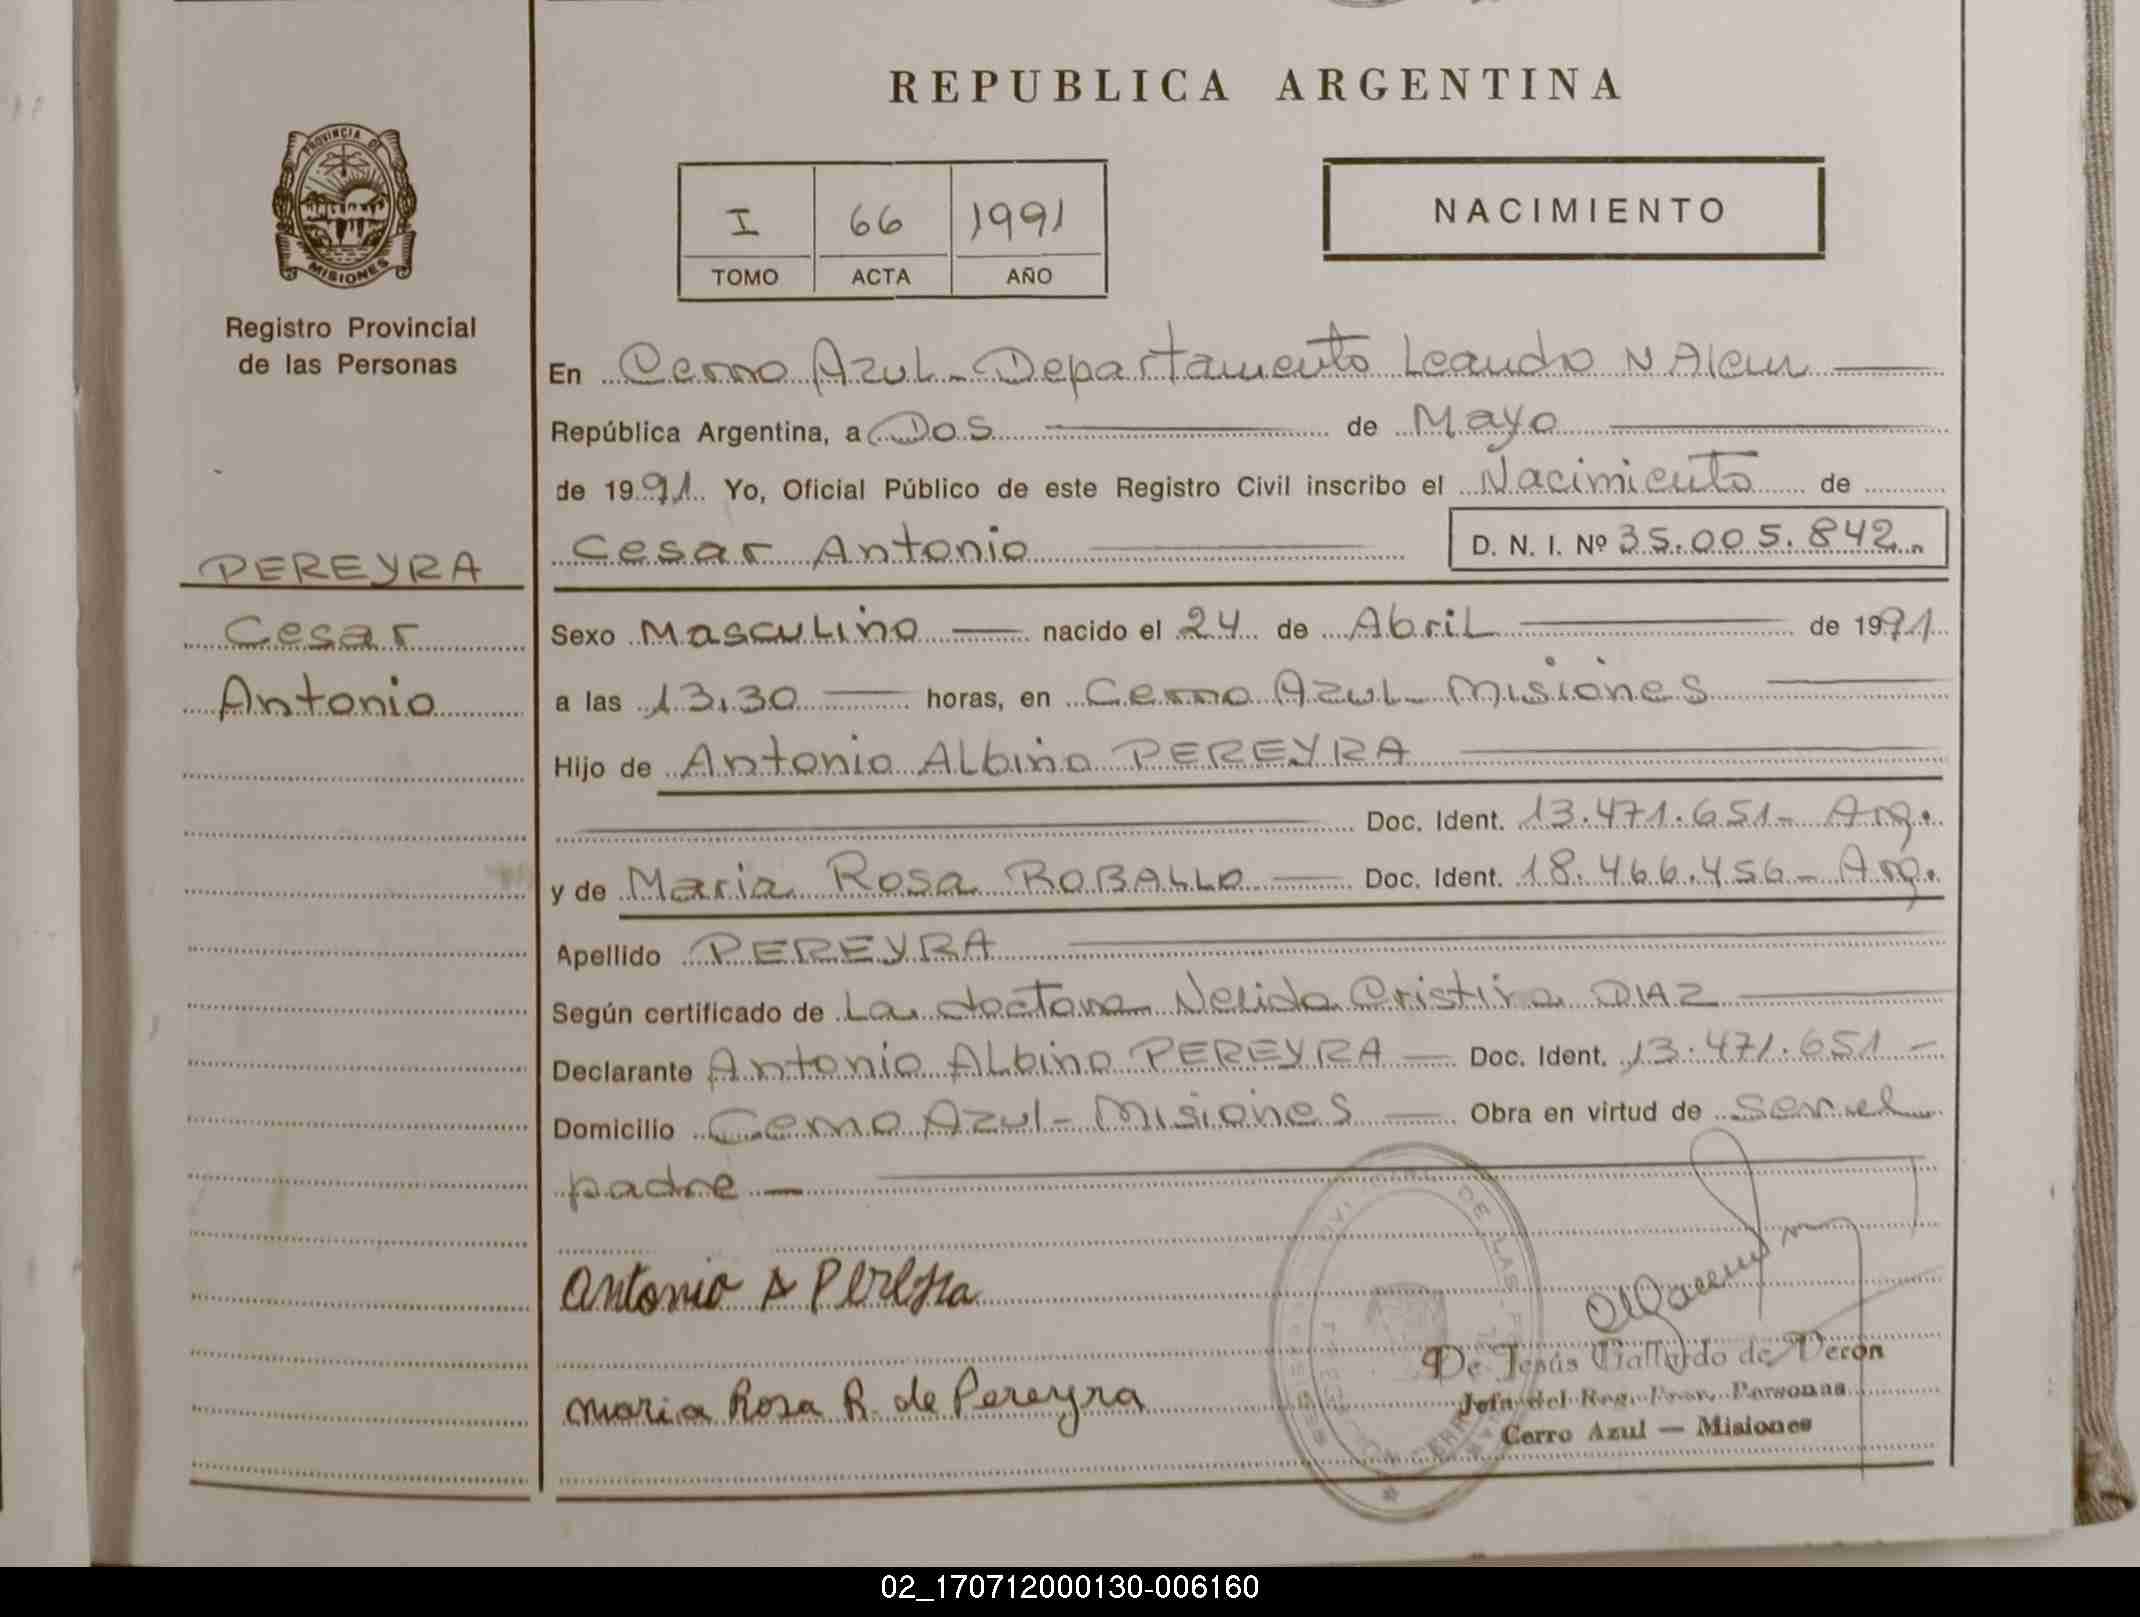 REPUBLICA ARGENTINA
PROVINCIA DE
MISIONES
Registro Provincial
de las Personas
I 66 1991
TOMO ACTA AÑO
NACIMIENTO
En Cerro Azul - Departamento Leandro N Alem
República Argentina, a Dos de Mayo
de 1991 Yo, Oficial Público de este Registro Civil inscribo el Nacimiento de
Cesar Antonio D. N. I. Nº 35.005.842
PEREYRA
Cesar
Antonio
Sexo Masculino nacido el 24 de Abril de 1991
a las 13,30 horas, en Cerro Azul - Misiones
Hijo de Antonio Albino PEREYRA
Doc. Ident. 13.471.651 - Arg.
y de Maria Rosa ROBALLO Doc. Ident. 18.466.456 - Arg.
Apellido PEREYRA
Según certificado de La doctora Nelida Cristina DIAZ
Declarante Antonio Albino PEREYRA Doc. Ident. 13.471.651 -
Domicilio Cerro Azul - Misiones Obra en virtud de ser el
padre -
Antonio A Pereyra
Maria Rosa R. de Pereyra
De Jesús Gallardo de Verón
Jefa del Reg. Prov. Personas
Cerro Azul — Misiones
02_170712000130-006160